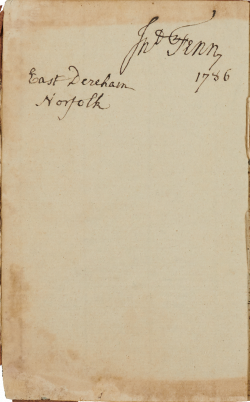 Jnº Fenn
1786
East Dereham
Norfolk